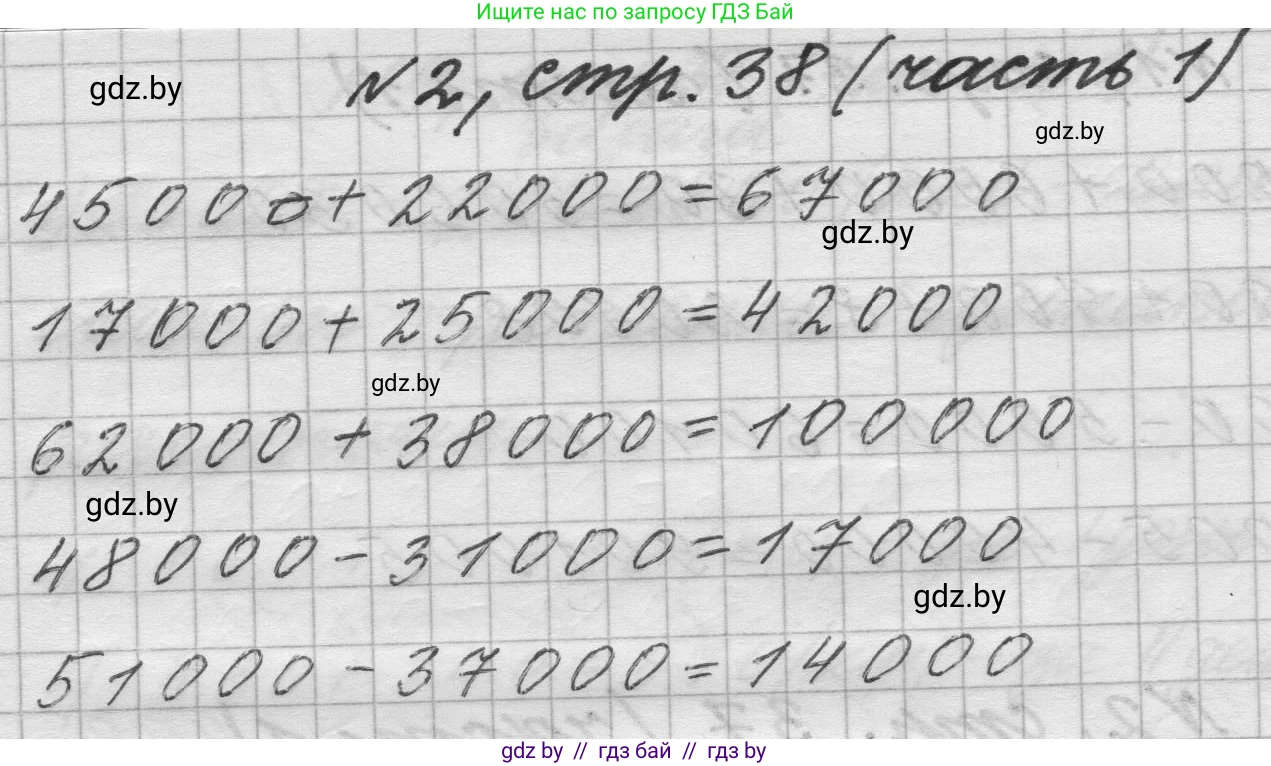 Ищите нас по запросу ГДЗ Бай
gdz.by
№2, стр. 38 (часть 1)
gdz.by
45000+22000=67000
gdz.by
17000+25000=42000
gdz.by
62000+38000=100000
gdz.by
48000-31000=17000
gdz.by
51000-37000=14000
gdz by // гдз бай // гдз by